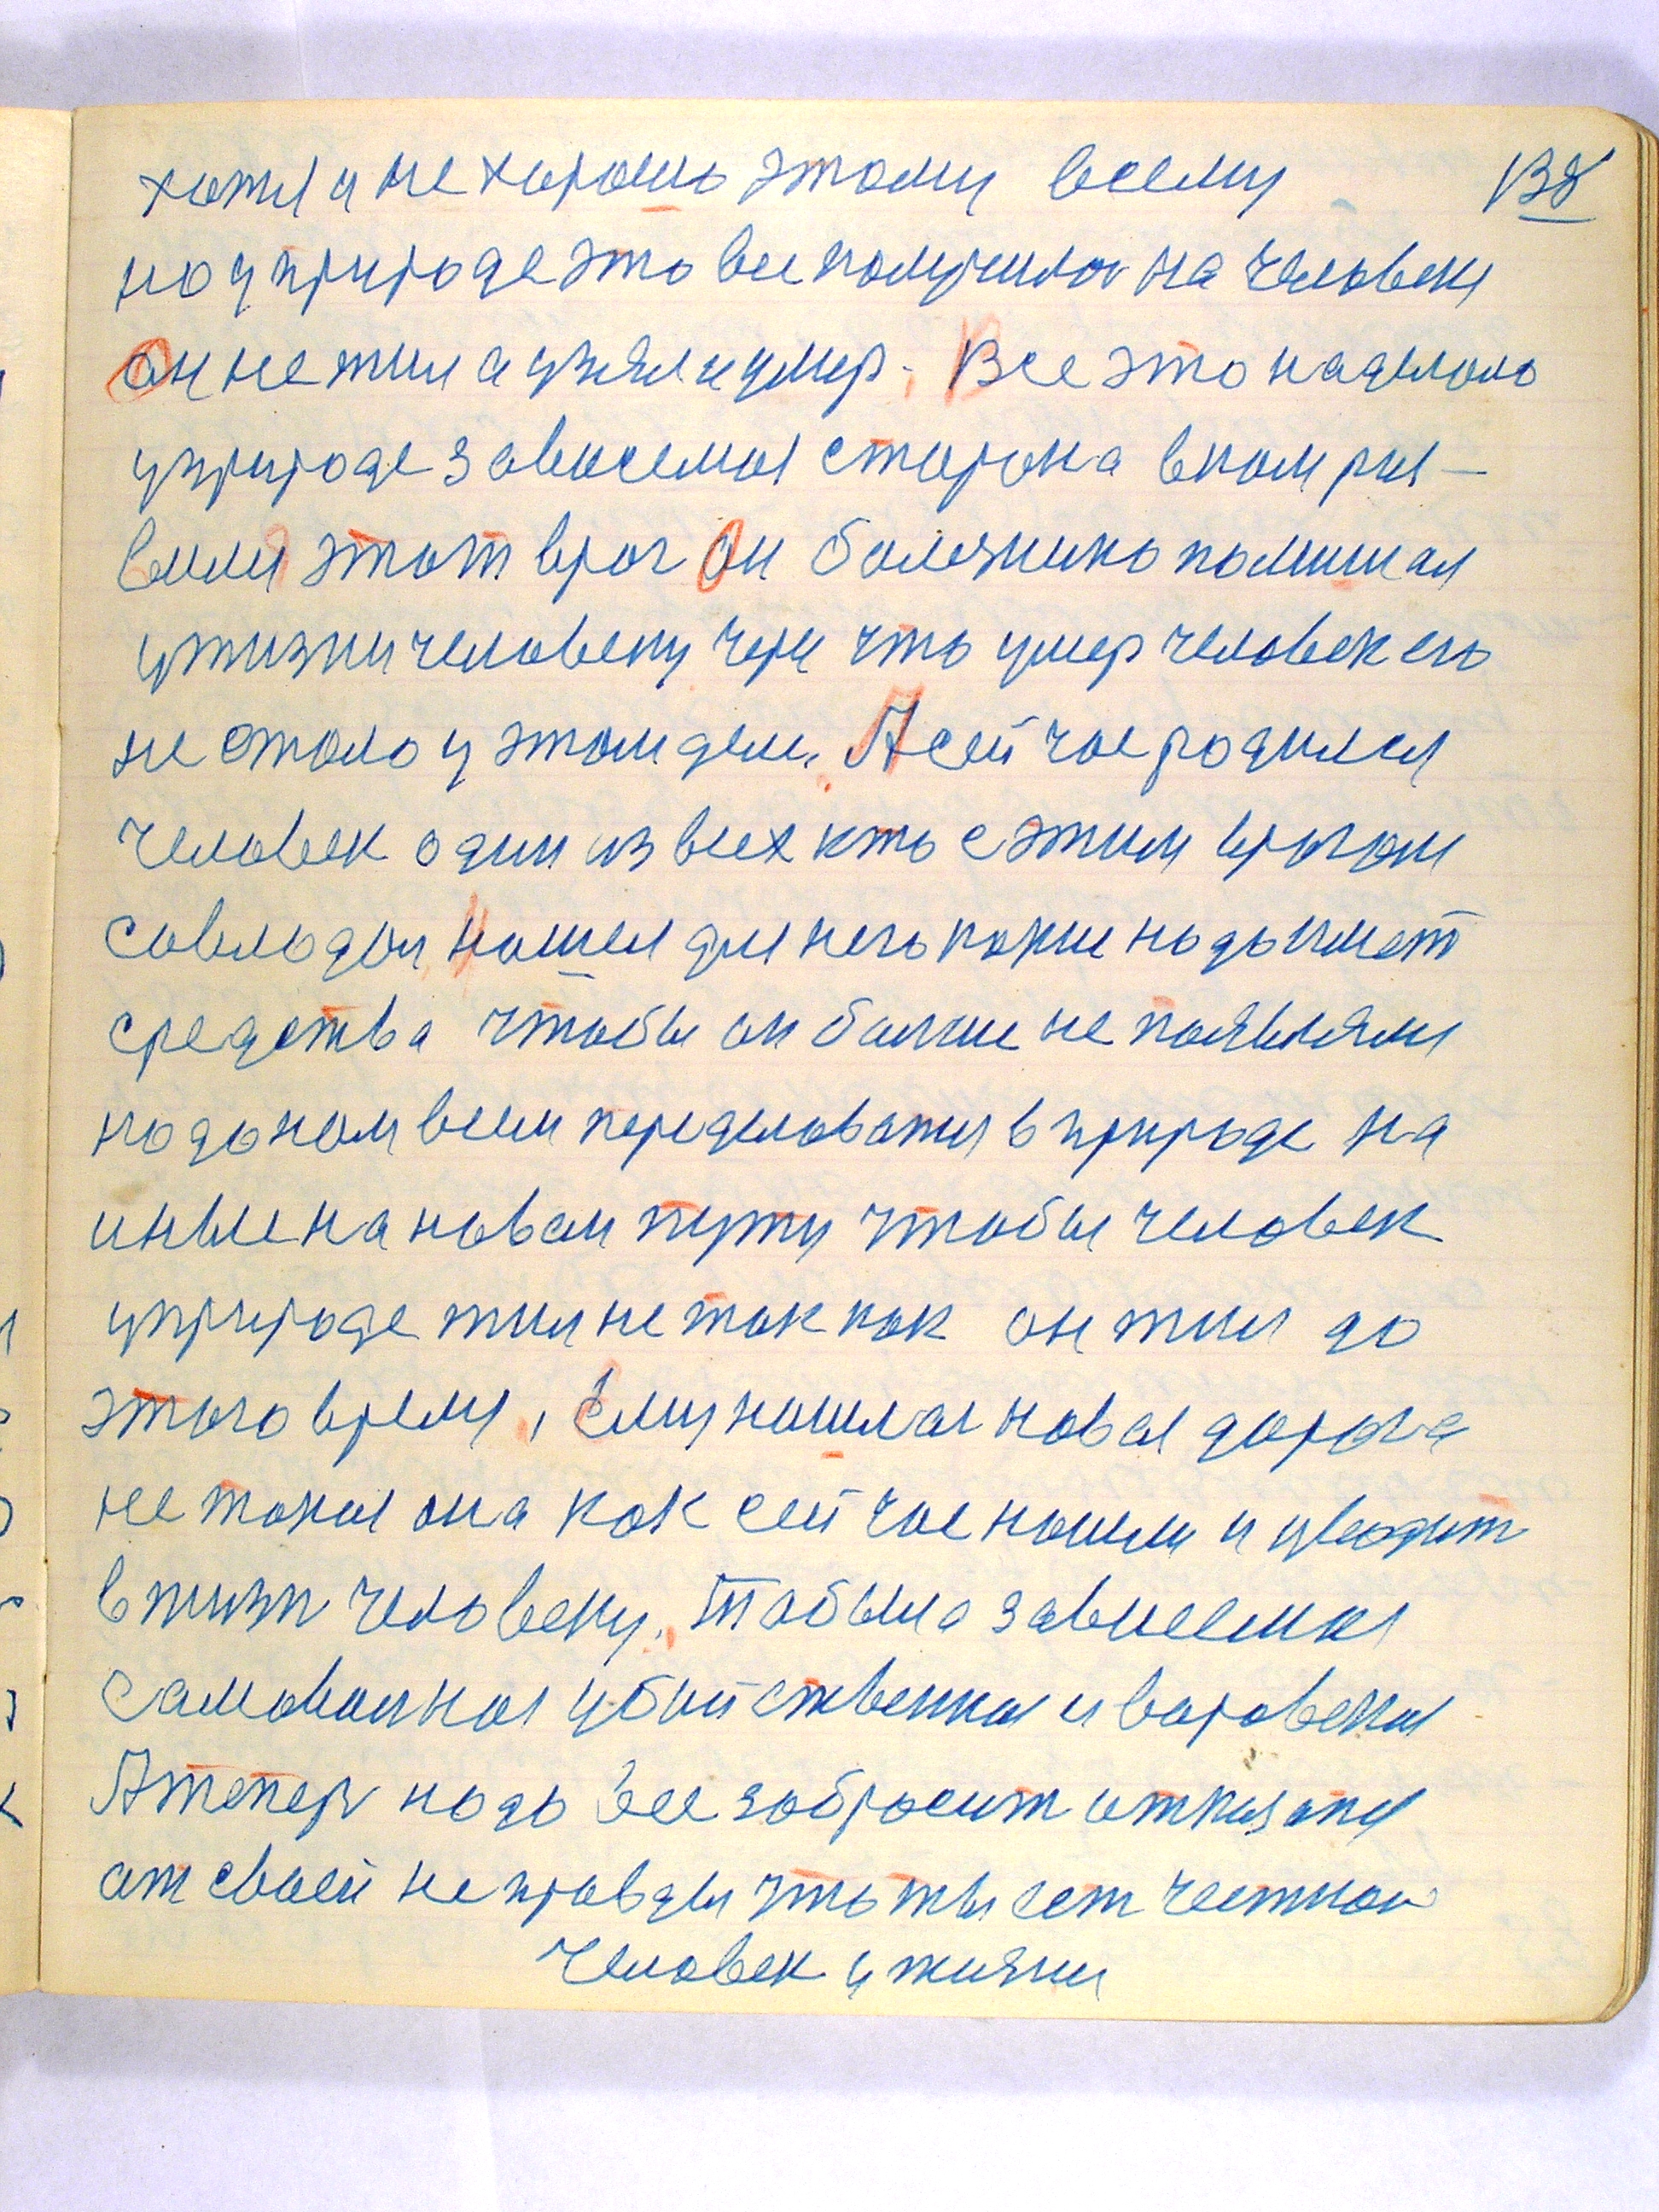 хотя и не хорошо этому всему 138
но у природе это все получилось на человеке
Он не жил а узял и умер. Все это наделало
у природе зависемая сторона в ком роя-
вился этот враг Он болезнию помишал
у жизни человеку через что умер человек его
не стало у этом деле. А сейчас родился
человек один из всех кто с этим врагом
совладал, нашел для него какие надо имет
средства чтобы он больше не появлялся
надо нам всем переделоватся в природе на
иные на новом пути чтобы человек
у природе жил не так как он жил до
этого время, Ему нашлась новая дорога
не такая она как сейчас нашли и уводит
в жизни человеку. Та была зависемая
самовольная убийственная и воровская
А теперь надо ее забросит отказатся
от своей не правды что ты сет честной
человек у жизни